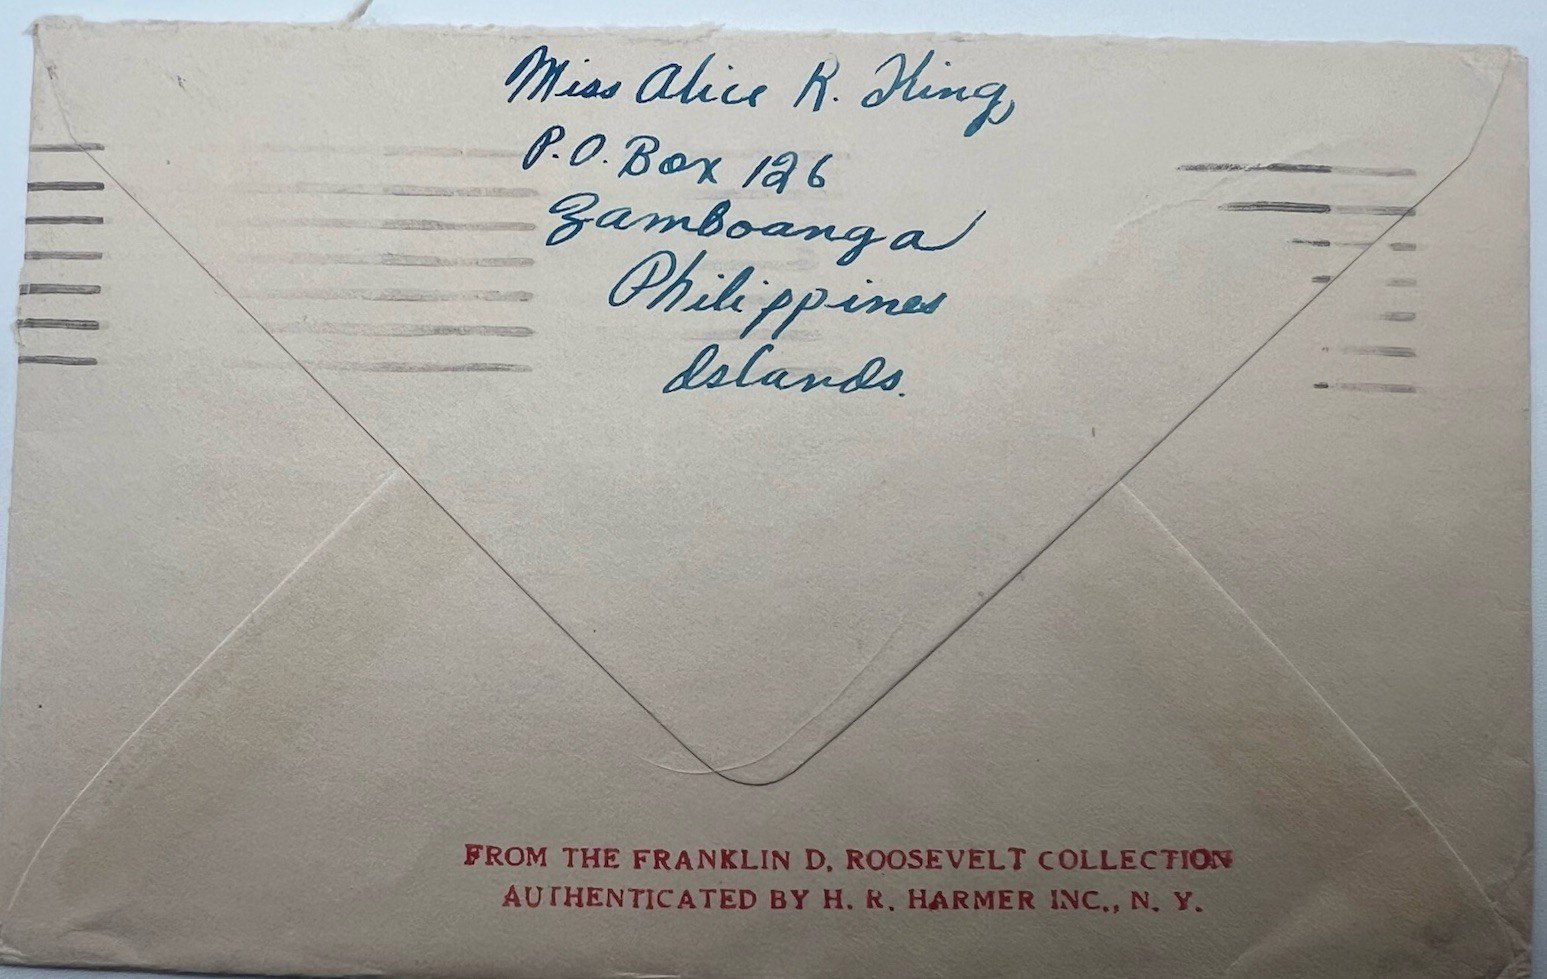 Miss Alice R. King,
P.O. Box 126
Zamboanga
Philippines
Islands.
FROM THE FRANKLIN D. ROOSEVELT COLLECTION
AUTHENTICATED BY H. R. HARMER INC., N. Y.